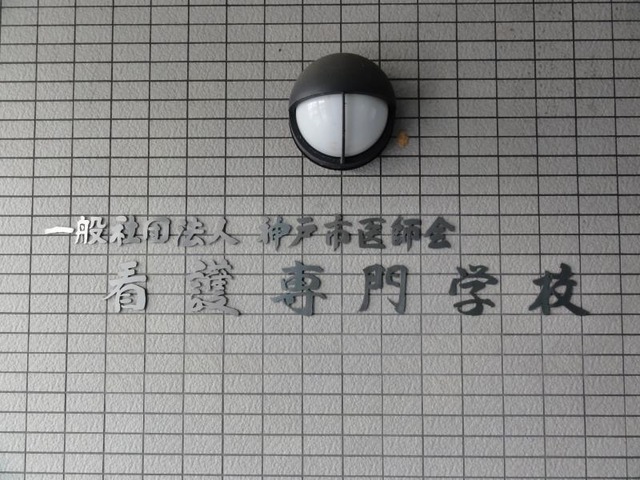 一般社団法人 神戸市医師会
看護専門学校